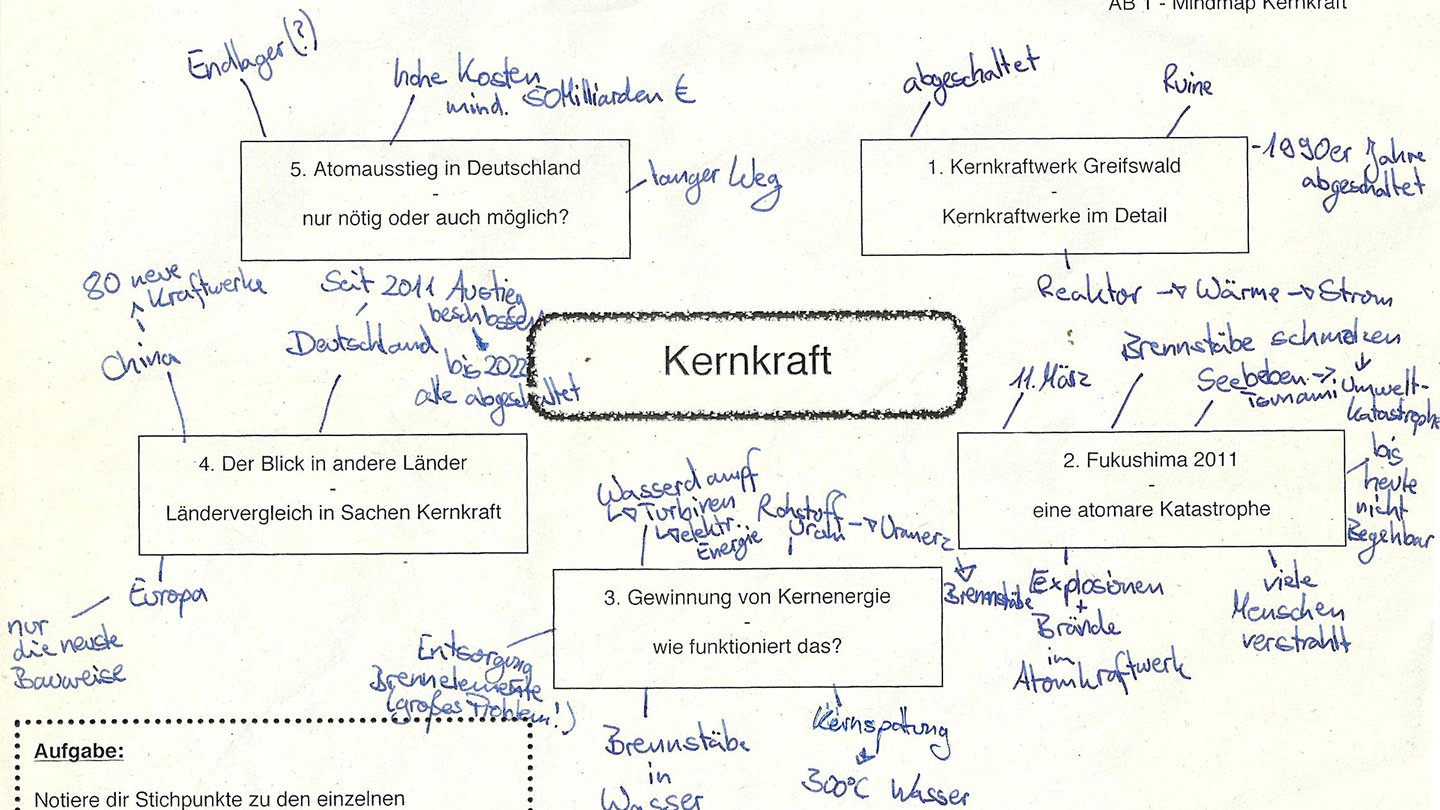 AB 1 - Mindmap Kernkraft
Endlager (?)
hohe Kosten
mind. 50 Milliarden €
langer Weg
5. Atomausstieg in Deutschland
-
nur nötig oder auch möglich?
abgeschaltet
Ruine
- 1990er Jahre
abgeschaltet
1. Kernkraftwerk Greifswald
-
Kernkraftwerke im Detail
Reaktor → Wärme → Strom
80 neue
Kraftwerke
China
Seit 2011 Austieg
beschlossen
Deutschland
bis 2022
alle abgeschaltet
Kernkraft
4. Der Blick in andere Länder
-
Ländervergleich in Sachen Kernkraft
Europa
nur
die neuste
Bauweise
11. März
Brennstäbe schmelzen
Seebeben →
Tsunami
Umwelt-
katastrophe
bis
heute
nicht
Begehbar
2. Fukushima 2011
-
eine atomare Katastrophe
Explosionen
+
Brände
im
Atomkraftwerk
viele
Menschen
verstrahlt
Wasserdampf
↳ Turbinen
↳ elektr.
Energie
Rohstoff
Uran → Uranerz
Brennstäbe
3. Gewinnung von Kernenergie
-
wie funktioniert das?
Entsorgung
Brennelemente
(großes Problem!)
Brennstäbe
in
Wasser
Kernspaltung
300°C Wasser
Aufgabe:
Notiere dir Stichpunkte zu den einzelnen